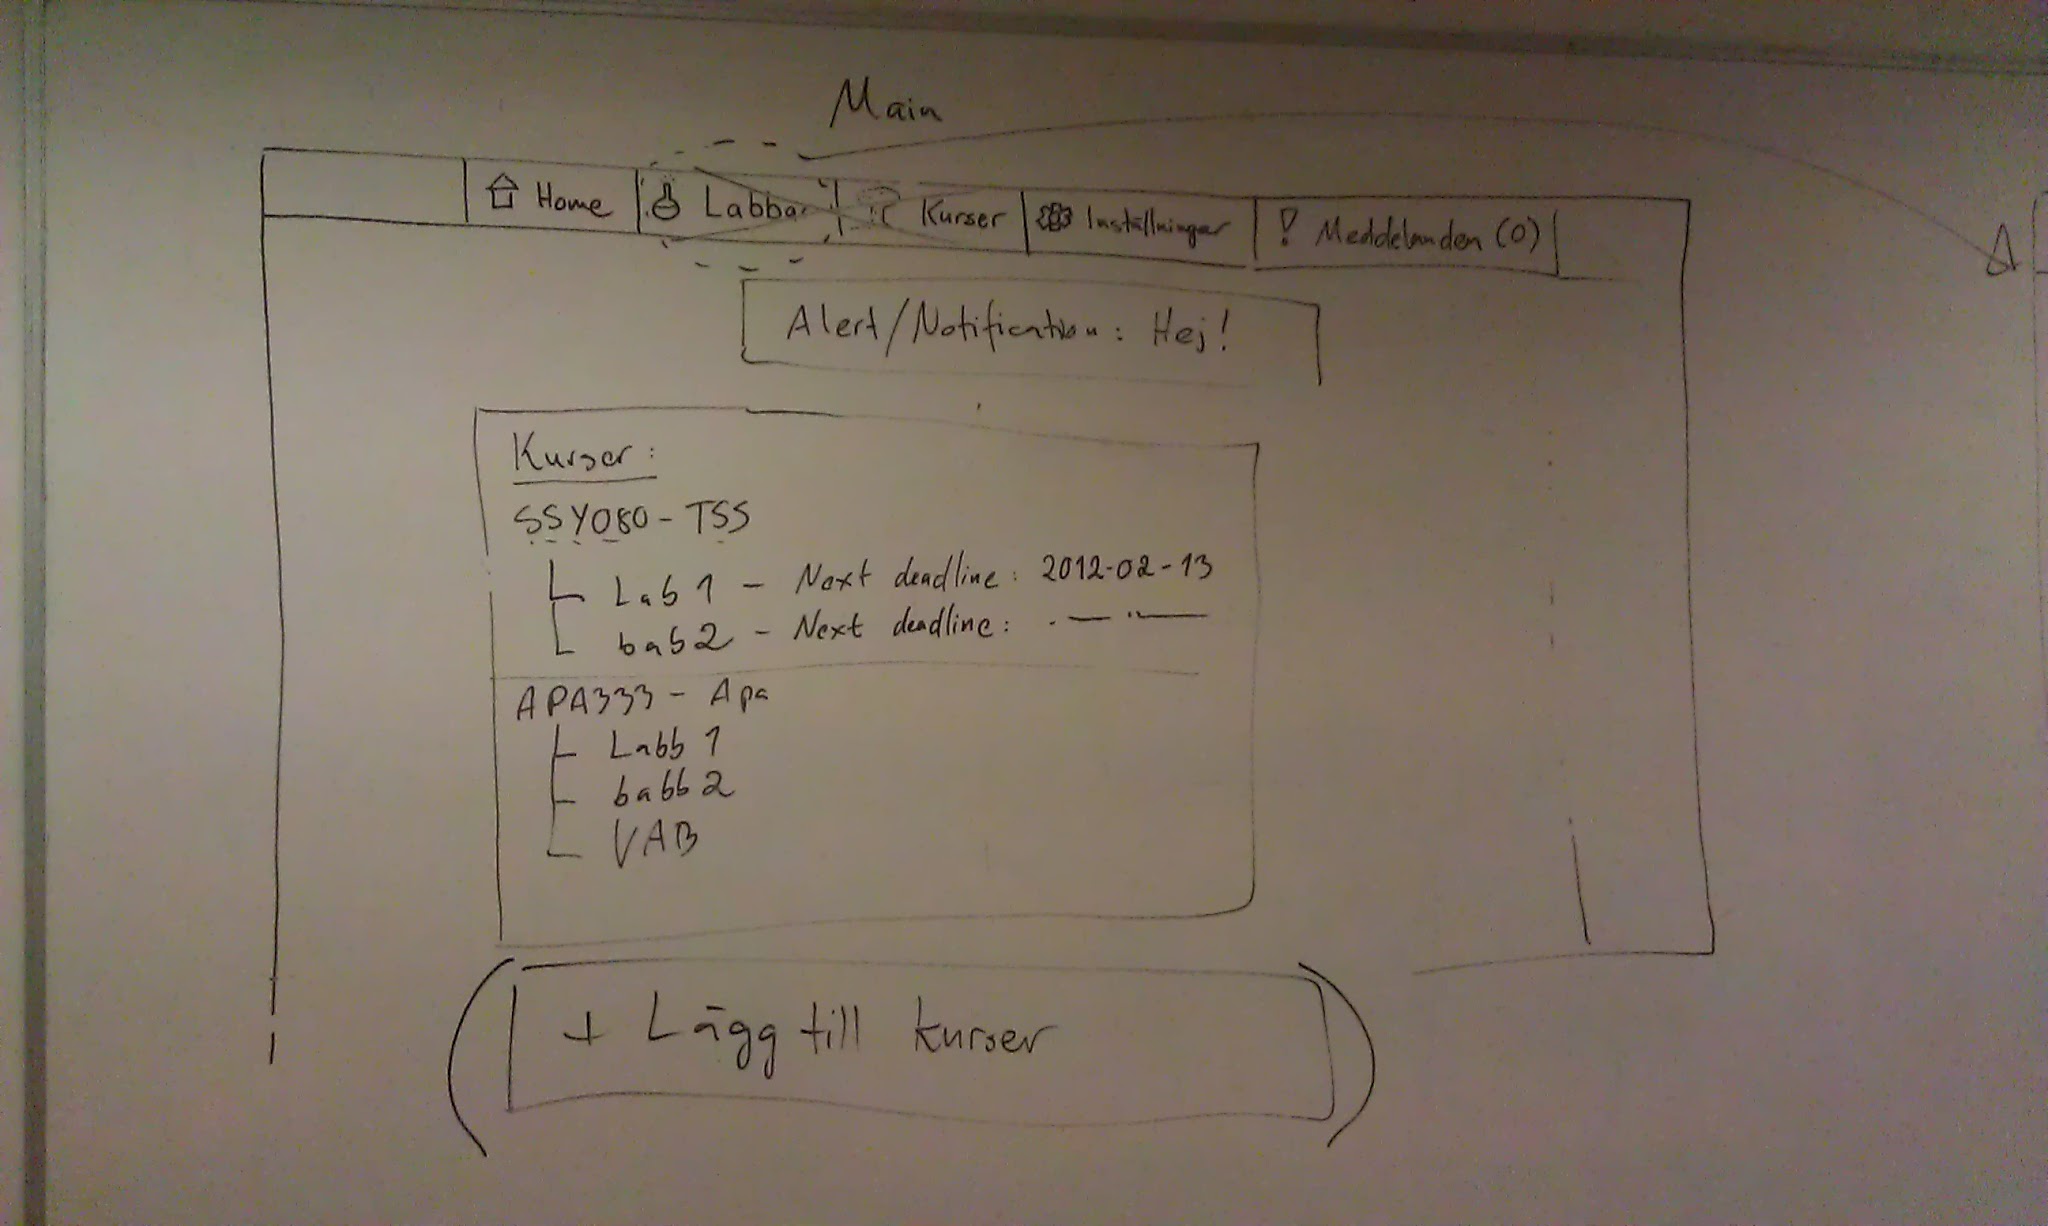 Main
Home Labbar Kurser Inställningar ! Meddelanden (0)
Alert/Notification: Hej!
Kurser:
SSY080 - TSS
Lab 1 - Next deadline: 2012-02-13
bab2 - Next deadline:
APA333 - Apa
Labb 1
babb 2
VAB
+ Lägg till kurser